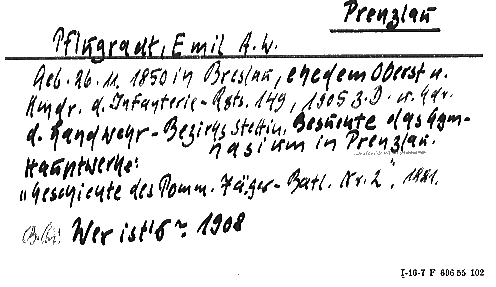 Prenzlau
Pflugradt, Emil A. W.
Geb. 26. 11. 1850 in Breslau, ehedem Oberst u.
Kmdr. d. Infanterie-Rgts. 149, 1905 z. D. u. Kdr.
d. Landwehr-Bezirks Stettin. Besuchte das Gym-
nasium in Prenzlau.
Hauptwerke:
"Geschichte des Pomm. Jäger-Batl. Nr. 2", 1881.
Wer ist's? 1908
I-16-7 F 606 55 102